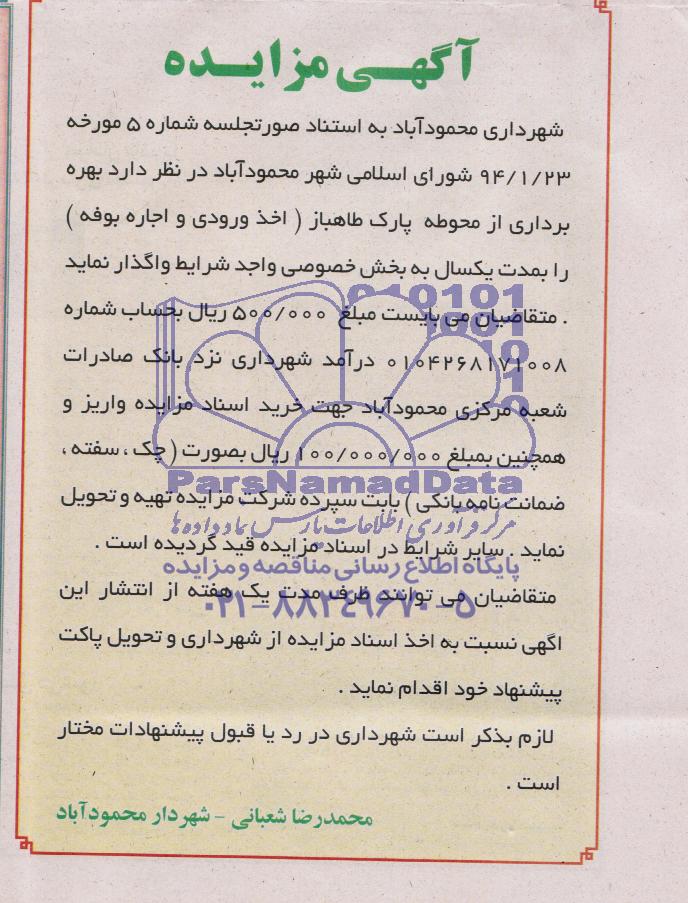 آگهی مزایده
شهرداری محمودآباد به استناد صورتجلسه شماره ۵ مورخه
۹۴/۱/۲۳ شورای اسلامی شهر محمودآباد در نظر دارد بهره
برداری از محوطه پارک طاهباز ( اخذ ورودی و اجاره بوفه )
را بمدت یکسال به بخش خصوصی واجد شرایط واگذار نماید
010101
. متقاضیان می بایست مبلغ ۵۰۰/۰۰۰ ریال بحساب شماره
1001
10
۰۱۰۴۲۶۸۱۷۱۰۰۸ درآمد شهرداری نزد بانک صادرات
1
0
شعبه مرکزی محمودآباد جهت خرید اسناد مزایده واریز و
همچنین بمبلغ ۱۰۰/۰۰۰/۰۰۰ ریال بصورت ( چک ، سفته ،
ParsNamadData
ضمانت نامه بانکی ) بابت سپرده شرکت مزایده تهیه و تحویل
مرکز فرآوری اطلاعات پارس نماد داده ها
نماید . سایر شرایط در اسناد مزایده قید گردیده است .
پایگاه اطلاع رسانی مناقصه و مزایده
متقاضیان می توانند ظرف مدت یک هفته از انتشار این
۰۲۱-۸۸۳۴۹۶۷۰-۵
اگهی نسبت به اخذ اسناد مزایده از شهرداری و تحویل پاکت
پیشنهاد خود اقدام نماید .
لازم بذکر است شهرداری در رد یا قبول پیشنهادات مختار
است .
محمدرضا شعبانی - شهردار محمودآباد